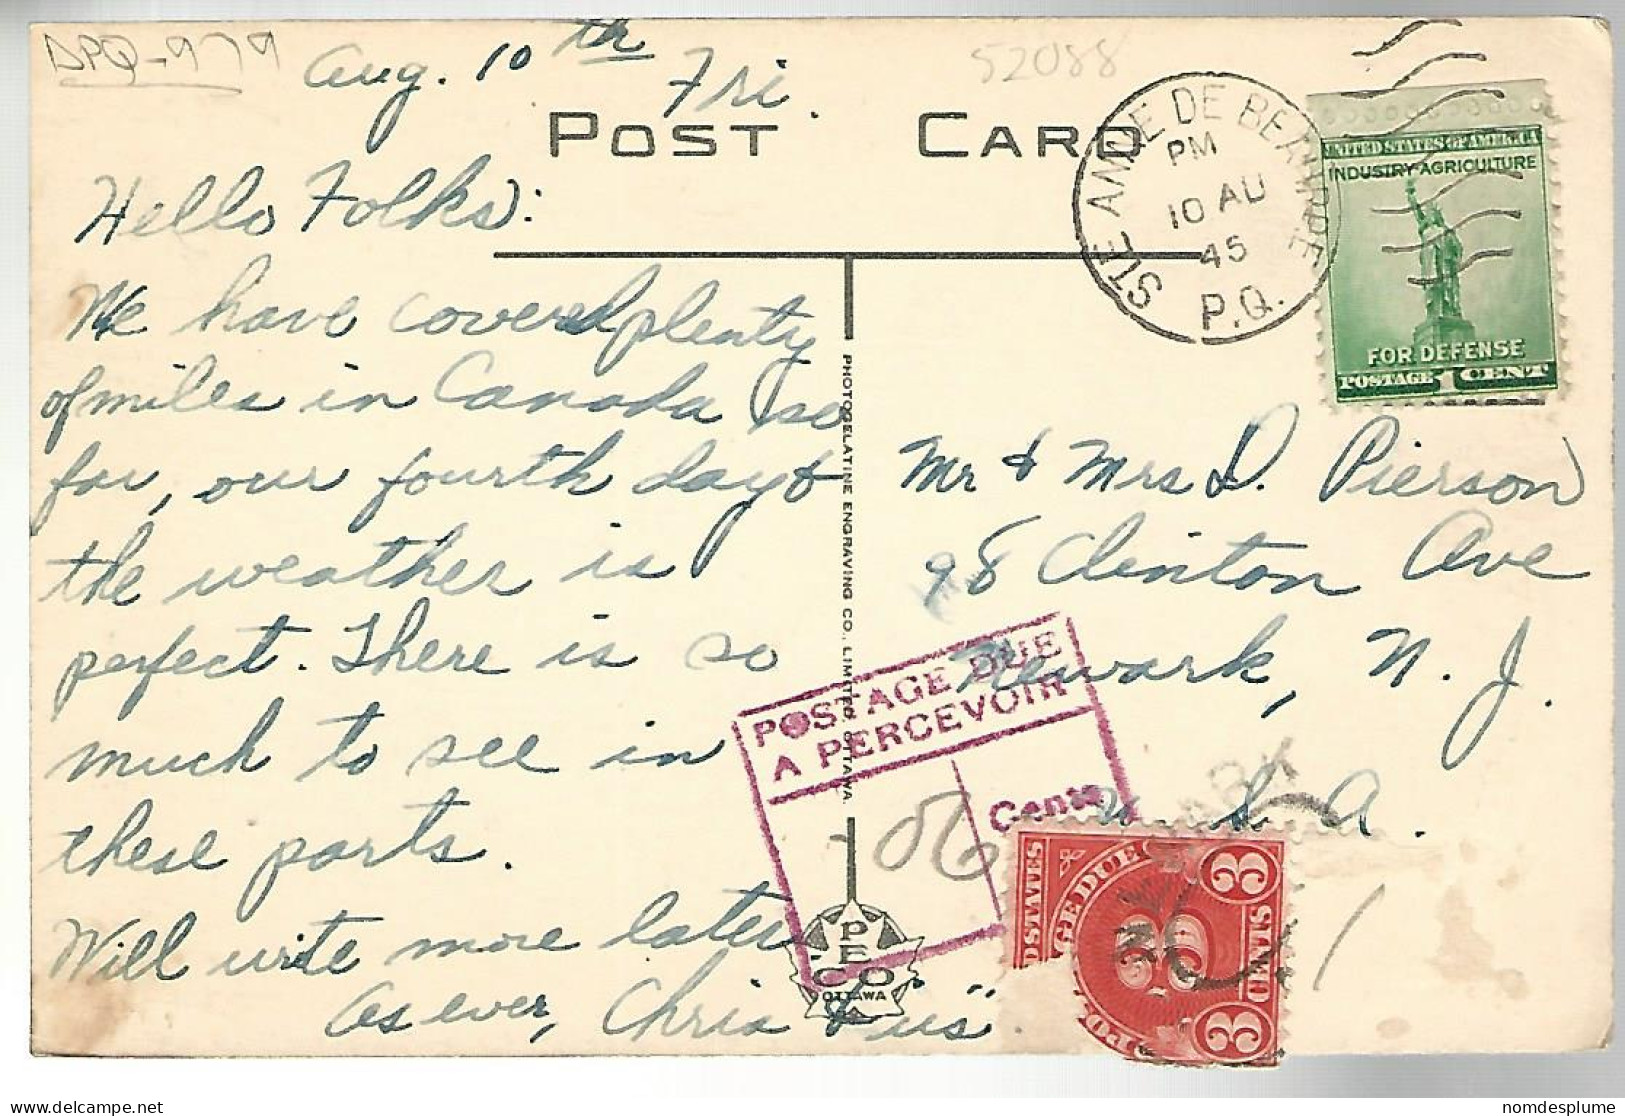 DPQ-979
52088
Aug. 10th Fri.
POST CARD
STE ANNE DE BEAUPRE
PM
10 AU
45
P.Q.
UNITED STATES OF AMERICA
INDUSTRY AGRICULTURE
FOR DEFENSE
POSTAGE 1 CENT
Hello Folks:
We have covered plenty
of miles in Canada so
far, our fourth day &
the weather is
perfect. There is so
much to see in
these parts.
Will write more later
As ever, Chris
PHOTOGELATINE ENGRAVING CO., LIMITED, OTTAWA.
PECO
OTTAWA
Mr & Mrs D. Pierson
98 Clinton Ave
Newark, N. J.
U. S. A.
POSTAGE DUE
A PERCEVOIR
06
Cents
3
3
3
nomdesplume
delcampe.net